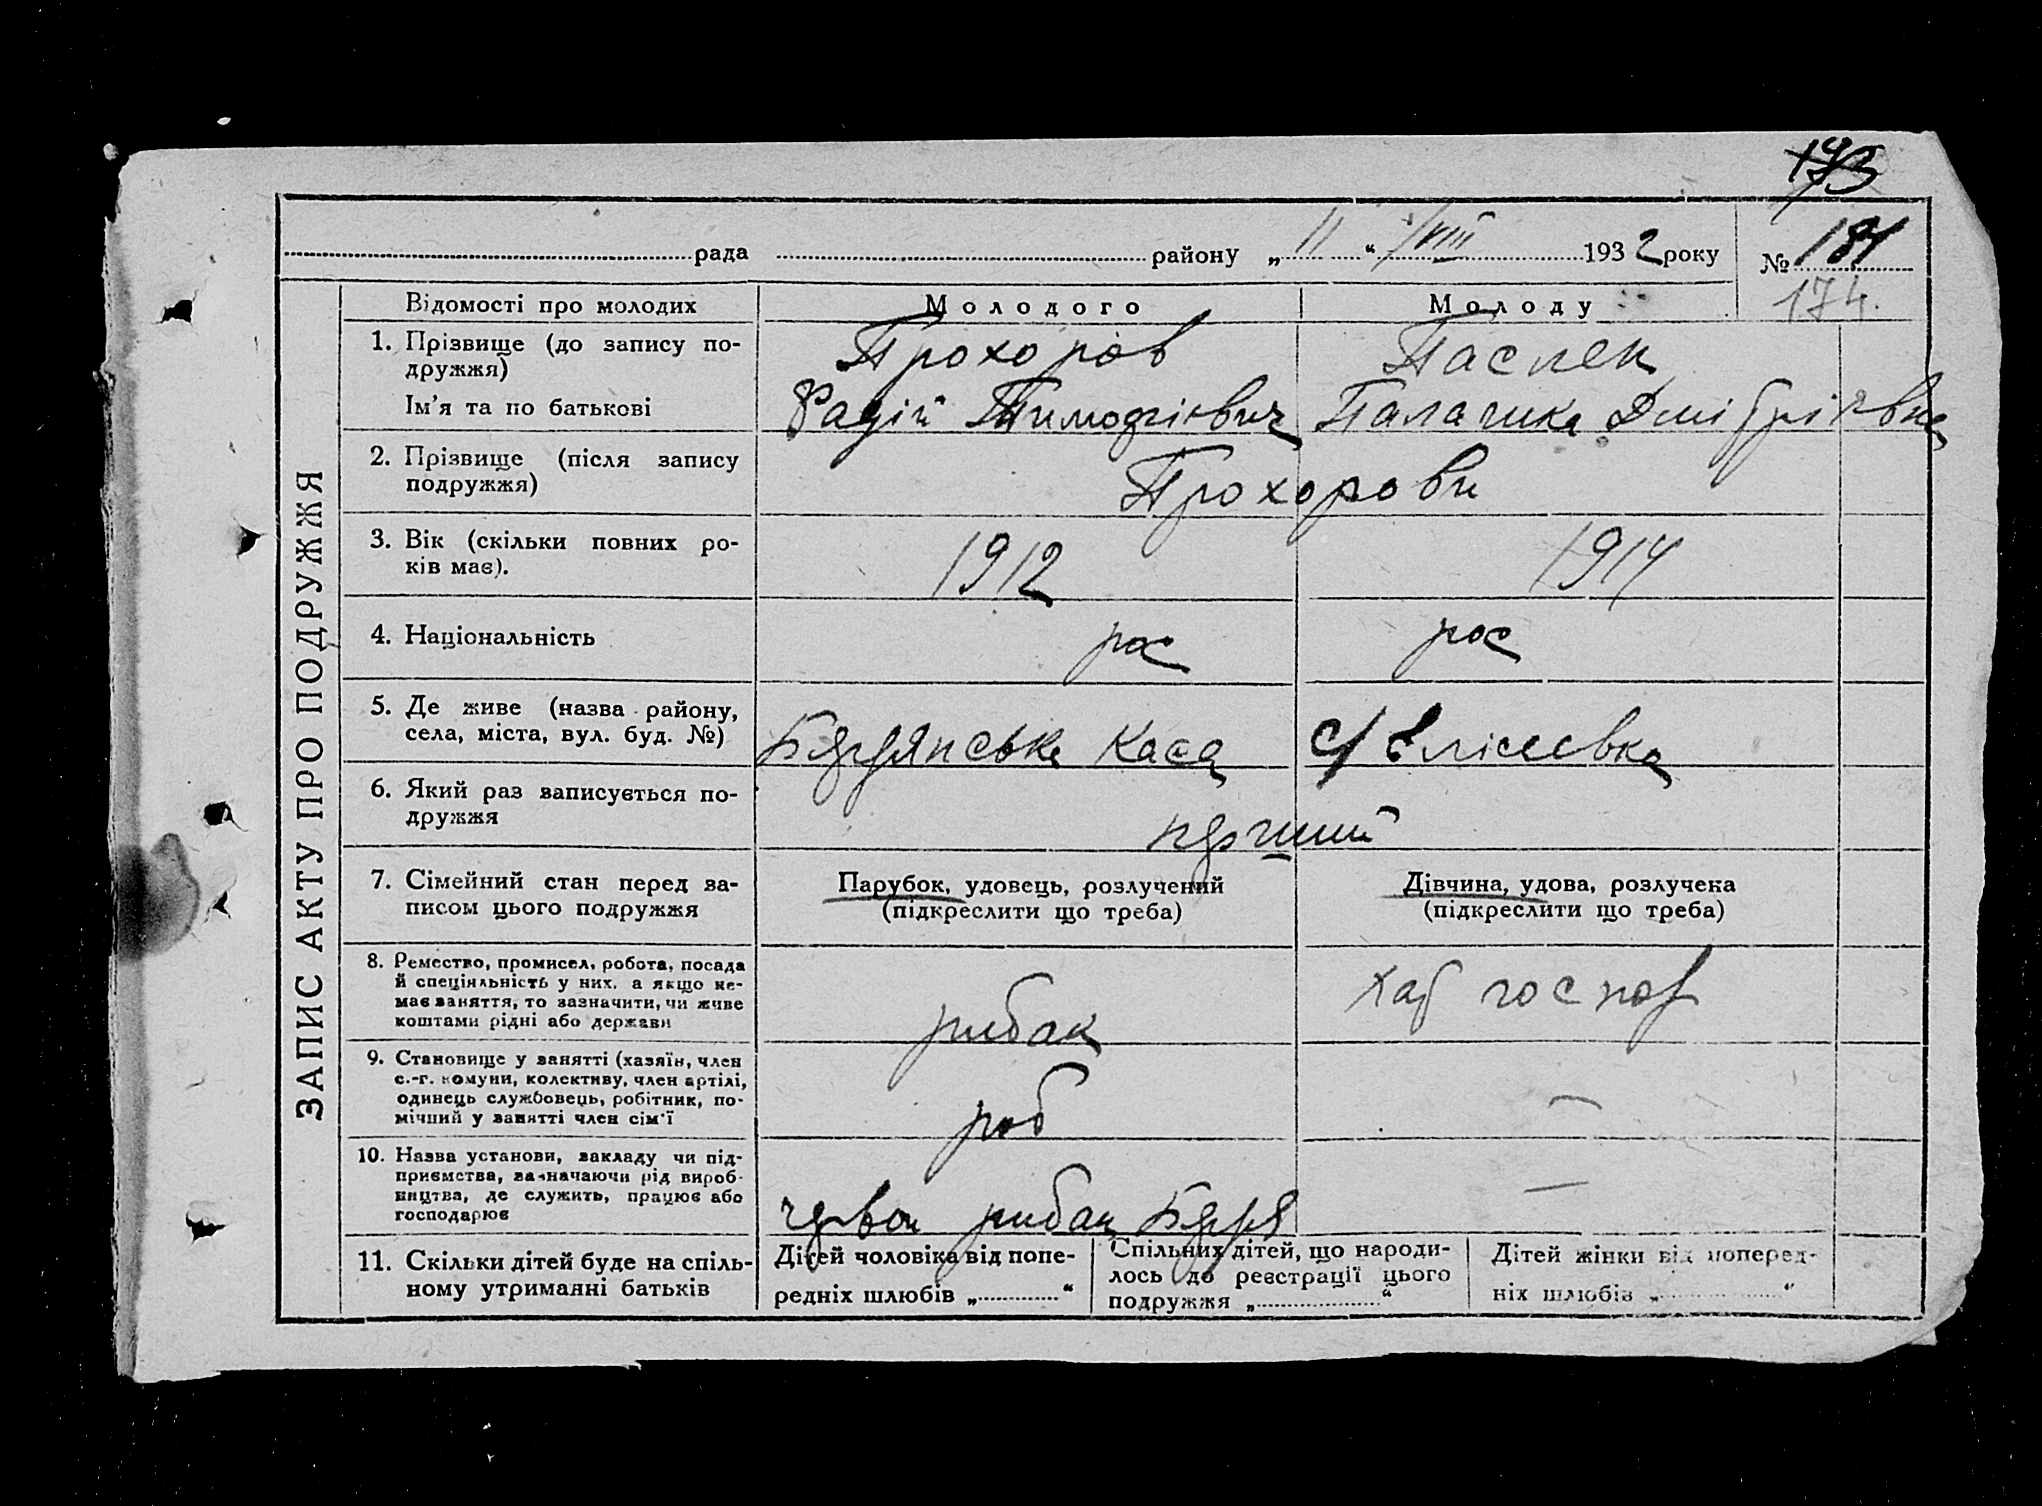 173
рада района „ 11 “ /VIII 1932 року № 181
174.
ЗАПИС АКТУ ПРО ПОДРУЖЖЯ
Відомості про молодих
Молодого
Молоду
1. Прізвище (до запису по-
дружжя)
Ім'я та по батькові
Прохоров
Тимофієвич
Паслен
Палашка Дмітрієвна
2. Прізвище (після запису
подружжя)
Прохорови
3. Вік (скільки повних ро-
ків має).
1912
1914
4. Національність
рос
рос
5. Де живе (назва району,
села, міста, вул. буд. №)
Бердянська Коса
с/ Єлісєєвка
6. Який раз записується по-
дружжя
перший
7. Сімейний стан перед за-
писом цього подружжя
Парубок, удовець, розлучений
(підкреслити що треба)
Дівчина, удова, розлучена
(підкреслити що треба)
8. Ремество, промисел, робота, посада
й спеціяльність у них, а якщо не-
має заняття, то зазначити, чи живе
коштами рідні або держави
рибак
хат господ
9. Становище у занятті (хазяїн, член
с.-г. комуни, колективу, член артілі,
одинець службовець, робітник, по-
мічний у занятті член сім'ї
роб
—
10. Назва установи, закладу чи під-
приємства, зазначаючи рід вироб-
ництва, де служить, працює або
господарює
червон рибак
—
11. Скільки дітей буде на спіль-
ному утриманні батьків
Дітей чоловіка від попе-
редніх шлюбів „ “
Спільних дітей, що народи-
лось до реєстрації цього
подружжя „ “
Дітей жінки від поперед-
ніх шлюбів „ “